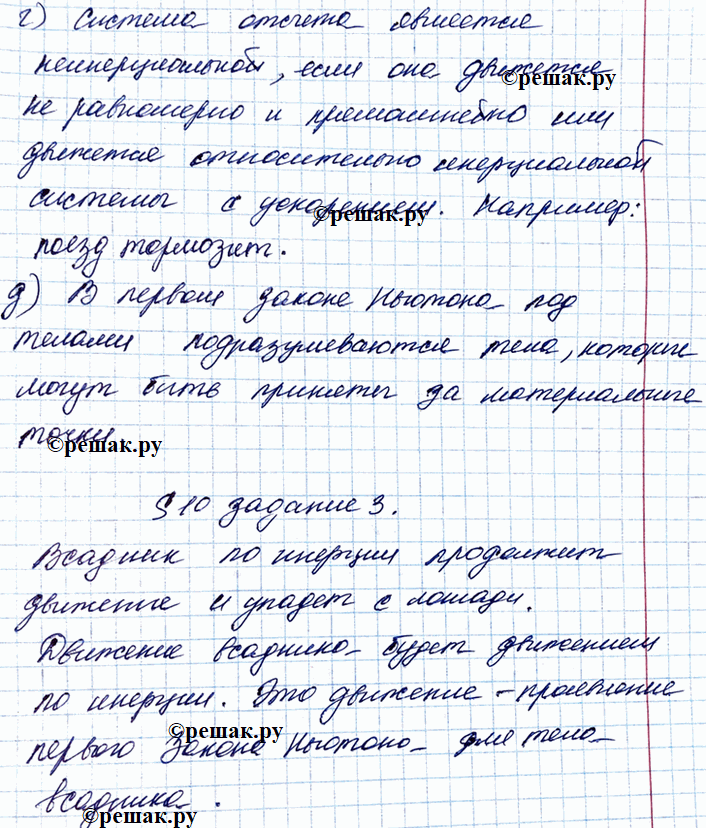 г) Система отсчета является
неинерциальной, если она движется
©решак.ру
не равномерно и прямолинейно или
движется относительно инерциальной
системы с ускорением. Например:
©решак.ру
поезд тормозит.
д) В первом законе Ньютона под
телами подразумеваются тела, которые
могут быть приняты за материальные
точки
©решак.ру
§10 задание 3.
Всадник по инерции продолжит
движение и упадет с лошади.
Движение всадника будет движением
по инерции. Это движение - проявление
©решак.ру
первого Закона Ньютона для тела
всадника.
©решак.ру